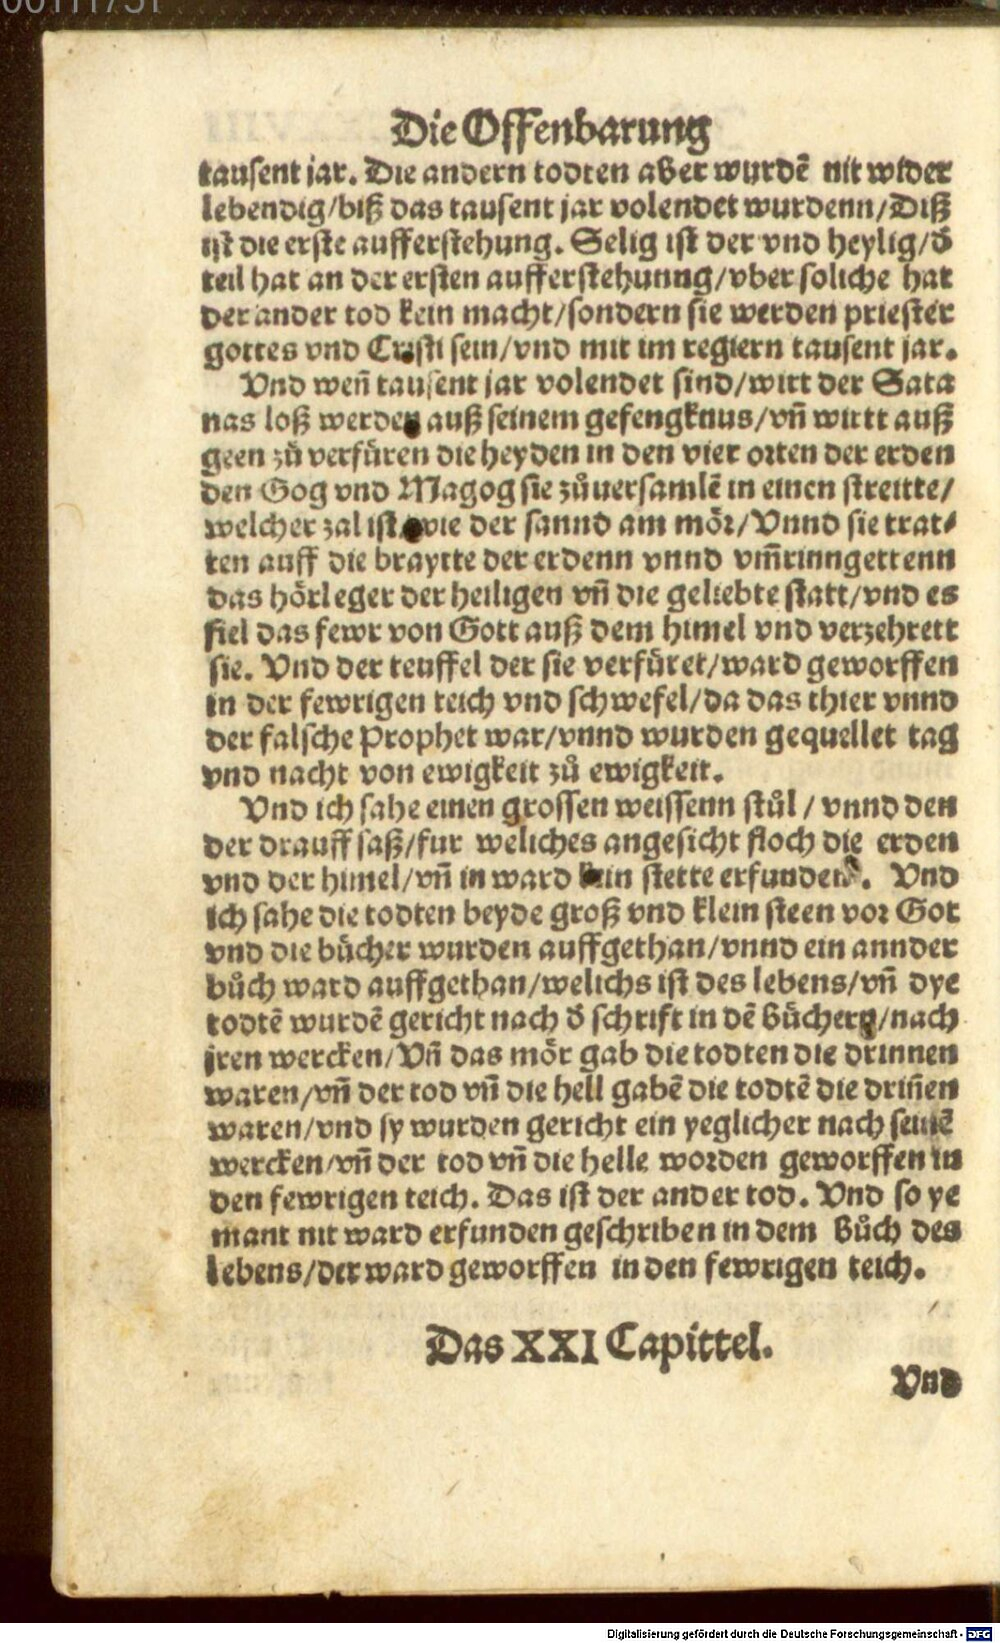 Die Offenbarung
tausent jar. Die andern todten aber wurdē nit wider
lebendig/biß das tausent jar volendet wurdenn/Diß
ist die erste aufferstehung. Selig ist der vnd heylig/d̄
teil hat an der ersten aufferstehunng/vber soliche hat
der ander tod kein macht/sondern sie werden priester
gottes vnd Cristi sein/vnd mit im regiern tausent jar.
Vnd weñ tausent jar volendet sind/wirt der Sata
nas loß werden auß seinem gefengknus/vñ wirtt auß
geen zů verfüren die heyden in den vier orten der erden
den Gog vnd Magog sie zůuersamlē in einen streitte/
welcher zal ist wie der sannd am mör/Vnnd sie trat⸗
ten auff die braytte der erdenn vnnd vm̃rinngettenn
das hörleger der heiligen vñ die geliebte statt/vnd es
fiel das fewr von Gott auß dem himel vnd verzehrett
sie. Vnd der teuffel der sie verfüret/ward geworffen
in der fewrigen teich vnd schwefel/da das thier vnnd
der falsche Prophet war/vnnd wurden gequellet tag
vnd nacht von ewigkeit zů ewigkeit.
Vnd ich sahe einen grossen weissenn stůl / vnnd den
der drauff saß/fur weliches angesicht floch die erden
vnd der himel/vñ in ward kein stette erfunden. Vnd
ich sahe die todten beyde groß vnd klein steen vor Got
vnd die bücher wurden auffgethan/vnnd ein annder
bůch ward auffgethan/welichs ist des lebens/vñ dye
todtē wurdē gericht nach d̄ schrift in dē Büchern/nach
jren wercken/Vñ das mör gab die todten die drinnen
waren/vñ der tod vñ die hell gabē die todtē die driñen
waren/vnd sy wurden gericht ein yeglicher nach seinē
wercken/vñ der tod vñ die helle worden geworffen in
den fewrigen teich. Das ist der ander tod. Vnd so ye
mant nit ward erfunden geschriben in dem Bůch des
lebens/der ward geworffen in den fewrigen teich.
Das XXI Capittel.
Vnd
Digitalisierung gefördert durch die Deutsche Forschungsgemeinschaft - DFG